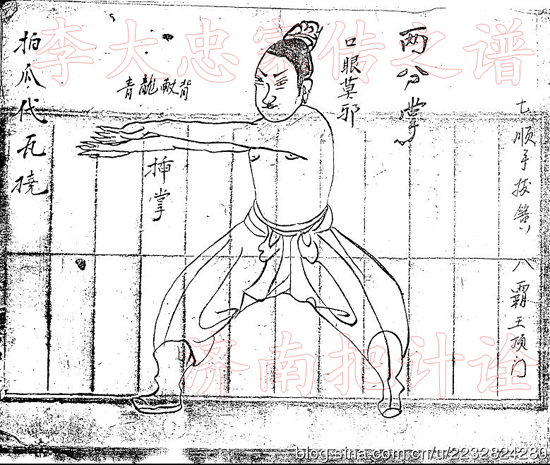 李大忠家传之谱
两分掌
七顺手投锆
八霸王顶门
口眼草邪
青龍献背
插掌
拍瓜代瓦撓
济南招计诠
blog.sina.com.cn/u/2232824280